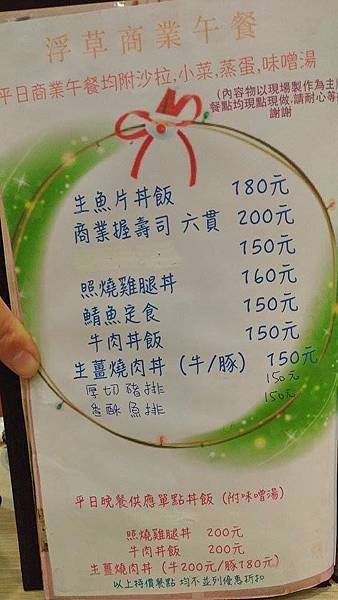 浮草商業午餐
平日商業午餐均附沙拉,小菜,蒸蛋,味噌湯
(內容物以現場製作為主)
餐點均現點現做,請耐心等
謝謝
生魚片丼飯 180元
商業握壽司 六貫 200元
150元
照燒雞腿丼 160元
鯖魚定食 150元
牛肉丼飯 150元
生薑燒肉丼 (牛/豚) 150元
厚切豬排 150元
香酥魚排 150元
平日晚餐供應單點丼飯 (附味噌湯)
照燒雞腿丼 200元
牛肉丼飯 200元
生薑燒肉丼 (牛200元/豚180元)
以上特價餐點 均不並列優惠折扣